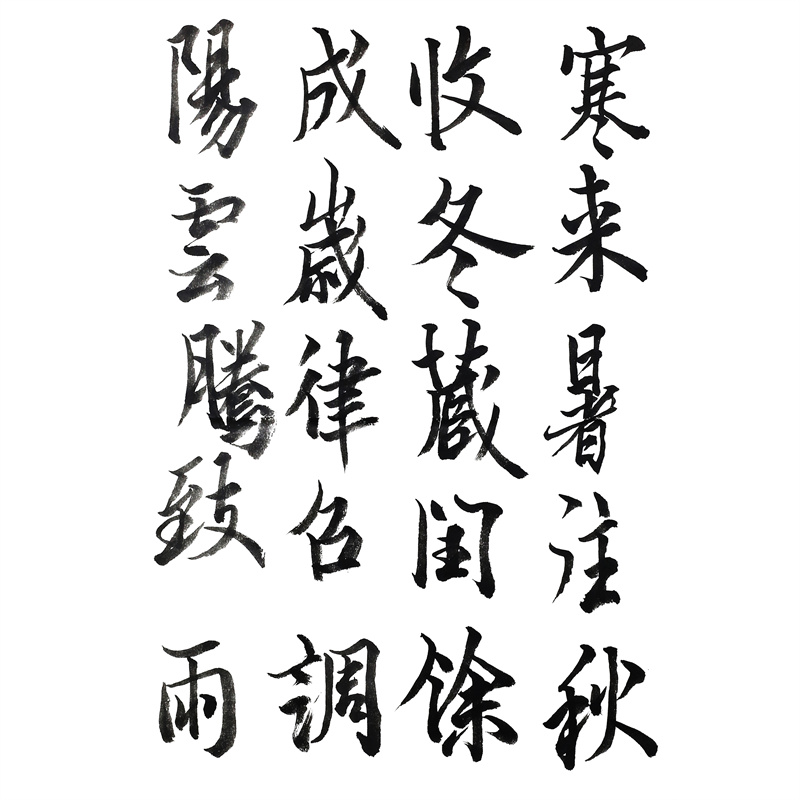 寒来暑往秋
收冬藏闰馀
成歲律召調
陽雲騰致雨